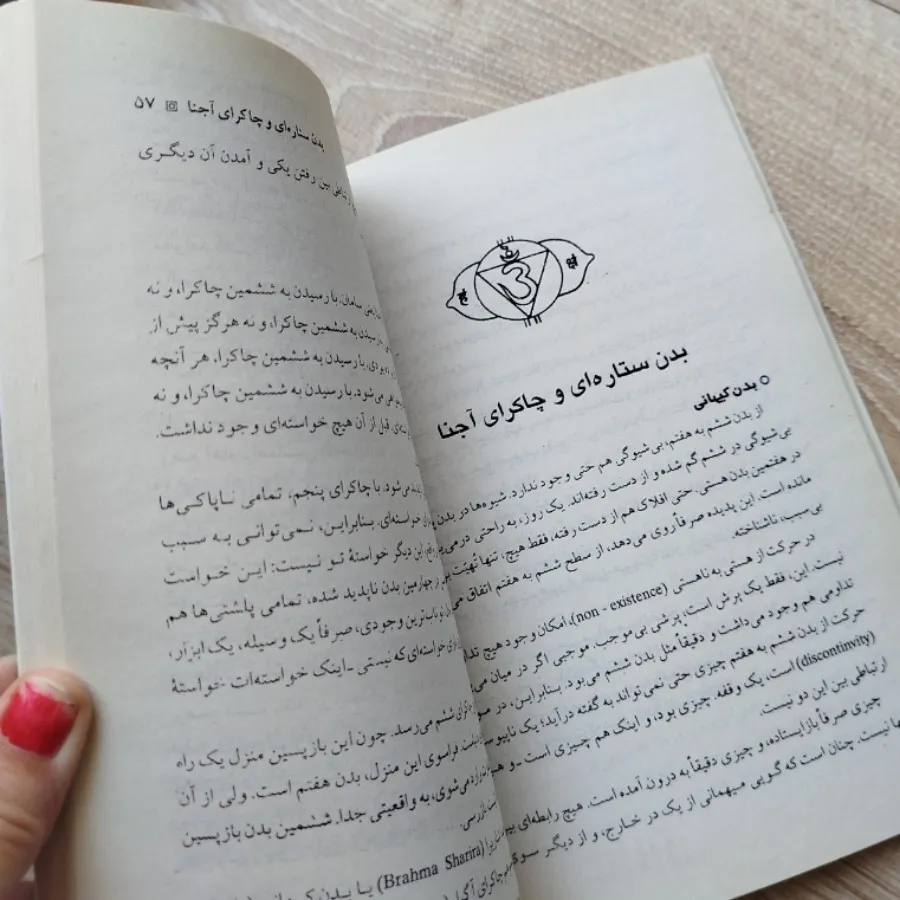 بدن ستاره‌ای و چاکرای آجنا
بدن کیهانی
از بدن ششم به هفتم، بی‌شیوگی هم حتی وجود ندارد. شیوه‌ها در بدن
بی‌شیوگی در ششم گم شده و از دست رفته‌اند. یک روز، به راحتی در می
در هفتمین بدن هستی. حتی افلاک هم از دست رفته، فقط هیچ، تنها تُهیّت
مانده است. این پدیده صرفاً روی می‌دهد، از سطح ششم به هفتم اتفاق می
بی‌سبب، ناشناخته.
در حرکت از هستی به ناهستی (non - existence)، امکان وجود هیچ
نیست. این، فقط یک پرش است، پرشی بی‌موجب. موجبی اگر در میان می
تداومی هم وجود می‌داشت و دقیقاً مثل بدن ششم می‌بود. بنابراین، در
حرکت از بدن ششم به هفتم چیزی حتی نمی‌تواند به گفته در آید؛ یک
(discontinvity) است، یک وقفه. چیزی بود، و اینک هم چیزی است ـ و
ارتباطی بین این دو نیست.
چیزی صرفاً باز ایستاده، و چیزی دقیقاً به درون آمده است. هیچ رابطه‌ای
نیست. چنان است که گویی میهمانی از یک در خارج، و از دیگر
بدن ستاره‌ای و چاکرای آجنا ۵۷
بین رفتن یکی و آمدن آن دیگری
سامان. با رسیدن به ششمین چاکرا، و نه
رسیدن به ششمین چاکرا، و نه هرگز پیش از
با رسیدن به ششمین چاکرا. هر آنچه
می‌شود. با رسیدن به ششمین چاکرا، و نه
قبل از آن هیچ خواسته‌ای وجود نداشت.
می‌شود. با چاکرای پنجم، تمامی ناپاکی‌ها
خواسته‌ای. بنابراین، نمی‌توانی به سبب
این دیگر خواستهٔ تو نیست: این خواست
چهارمین بدن ناپدید شده، تمامی پاشتی‌ها هم
ناب‌ترین وجودی، صرفاً یک وسیله، یک ابزار،
خواسته‌ای که نیستی ـ اینک خواسته‌ات خواستهٔ
ششم می‌رسد. چون این بازپسین منزل یک راه
فراسوی این منزل، بدن هفتم است. ولی از آن
می‌شوی، به واقعیتی جدا. ششمین بدن بازپسین
(Brahma Sharira) یا بدن